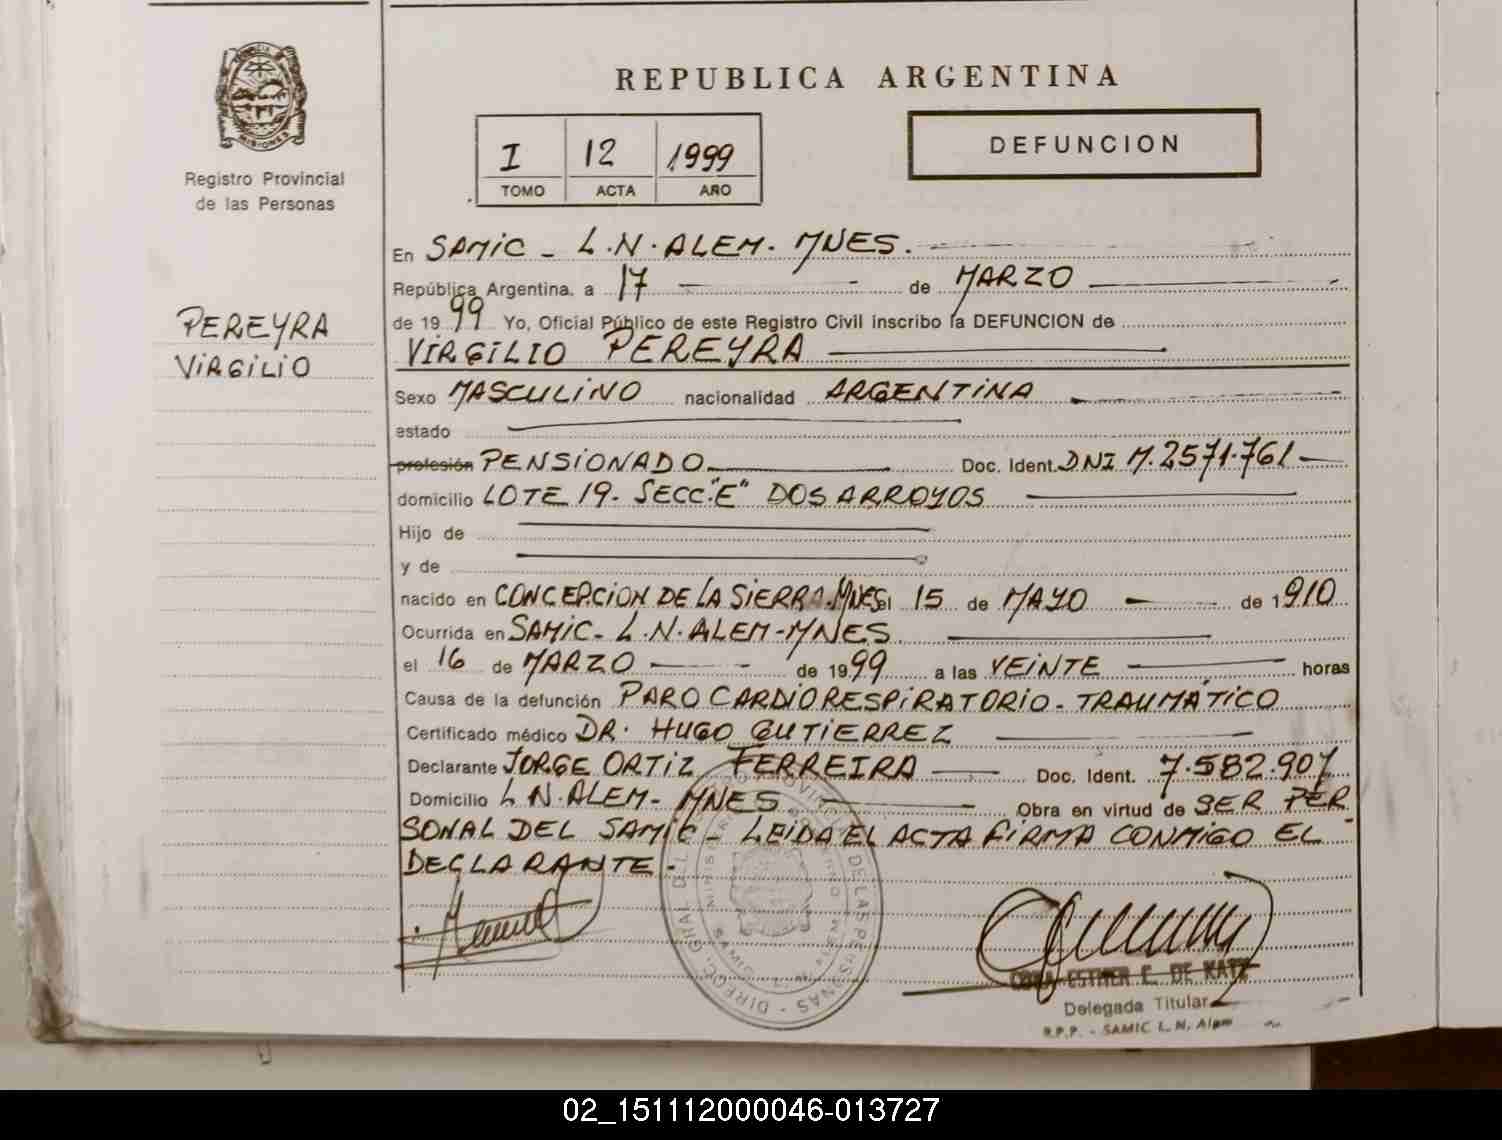 REPUBLICA ARGENTINA
MISIONES
Registro Provincial
de las Personas
I 12 1999
TOMO ACTA AÑO
DEFUNCION
PEREYRA
VIRGILIO
En SAMIC - L.N. ALEM. MNES.
República Argentina, a 17 de MARZO
de 1999 Yo, Oficial Público de este Registro Civil inscribo la DEFUNCION de
VIRGILIO PEREYRA
Sexo MASCULINO nacionalidad ARGENTINA
estado
profesión PENSIONADO Doc. Ident. DNI M. 2571.761
domicilio LOTE 19- SECC."E" DOS ARROYOS
Hijo de
y de
nacido en CONCEPCION DE LA SIERRA. MNES el 15 de MAYO de 1910
Ocurrida en SAMIC- L.N. ALEM-MNES
el 16 de MARZO de 1999 a las VEINTE horas
Causa de la defunción PARO CARDIORESPIRATORIO - TRAUMÁTICO
Certificado médico DR. HUGO GUTIERREZ
Declarante JORGE ORTIZ FERREIRA Doc. Ident. 7.582.907
Domicilio L N. ALEM- MNES Obra en virtud de SER PER
SONAL DEL SAMIC - LEIDA EL ACTA FIRMA CONMIGO EL
DECLARANTE-
ESTHER E. DE KATZ
Delegada Titular
R.P.P. - SAMIC L. N. Alem
02_151112000046-013727